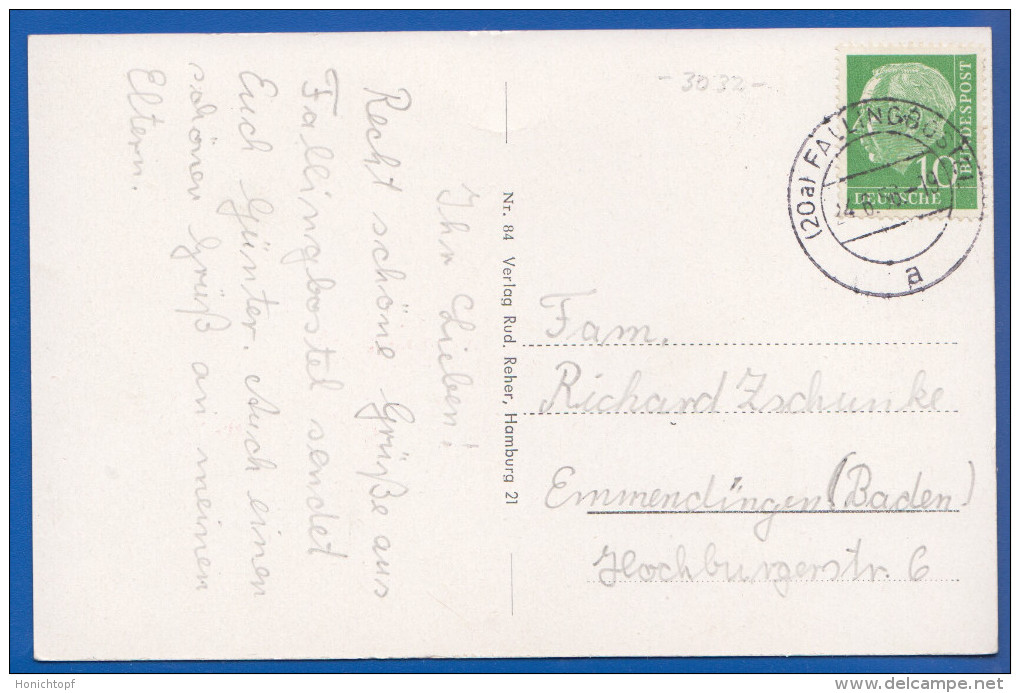 Ihr Lieben!
Recht schöne Grüße aus
Fallingbostel sendet
Euch Günter. Auch einen
schönen Gruß an meinen
Eltern.
Nr. 84 Verlag Rud. Reher, Hamburg 21
- 3032 -
DEUTSCHE
BUNDESPOST
10
(20a) FALLINGBOSTEL
24.6.56-19
a
Fam.
Richard Zschunke
Emmendingen (Baden)
Hochburgerstr. 6
Honichtopf
www.delcampe.net